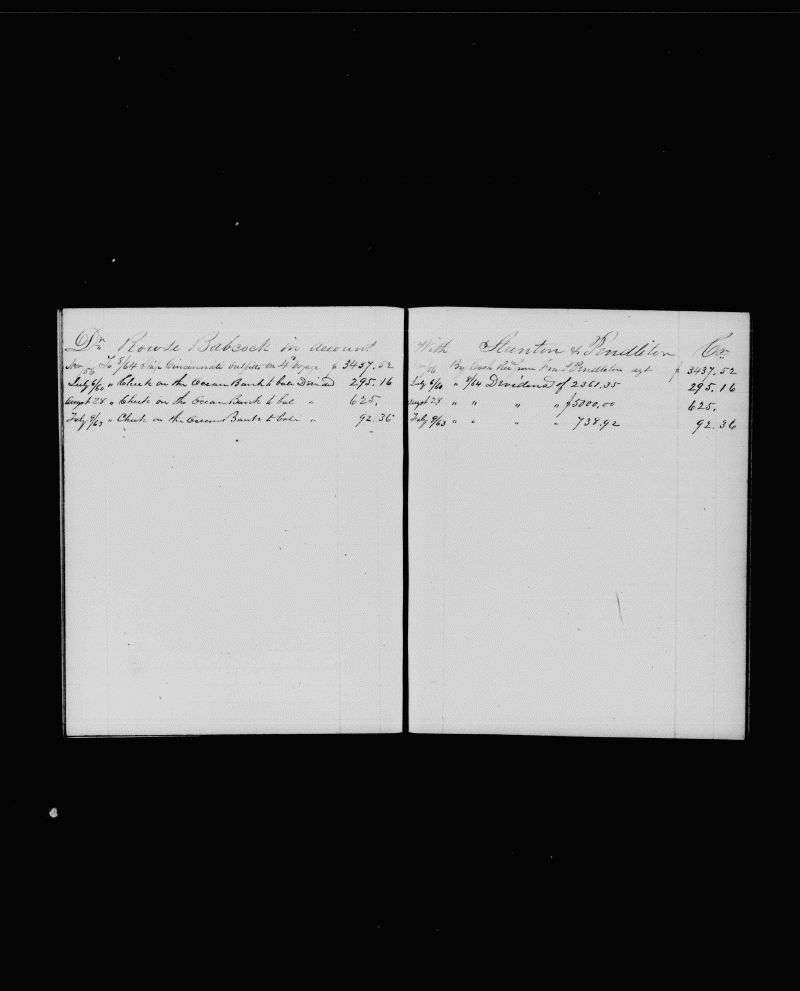 Dr Rowse Babcock in account
Nov 56 To 8/64 Ship Cincinnati outfitts on 4th Voyage $ 3437.52
July 6/60 " Check on the Ocean Bank to bale Dividend 295.16
Augst 28 " Check on the Ocean Bank to bal " 625.
Feby 9/63 " Check on the Ocean Bank to bale " 92.36
With Stanton & Pendleton Cr
By Cash Recd Pendleton agt $ 3437.52
July 6/60 " 8/64 Dividend of 2361.35 295.16
Augst 28 " " " " $5000.00 625.
Feby 9/63 " " " " 738.92 92.36